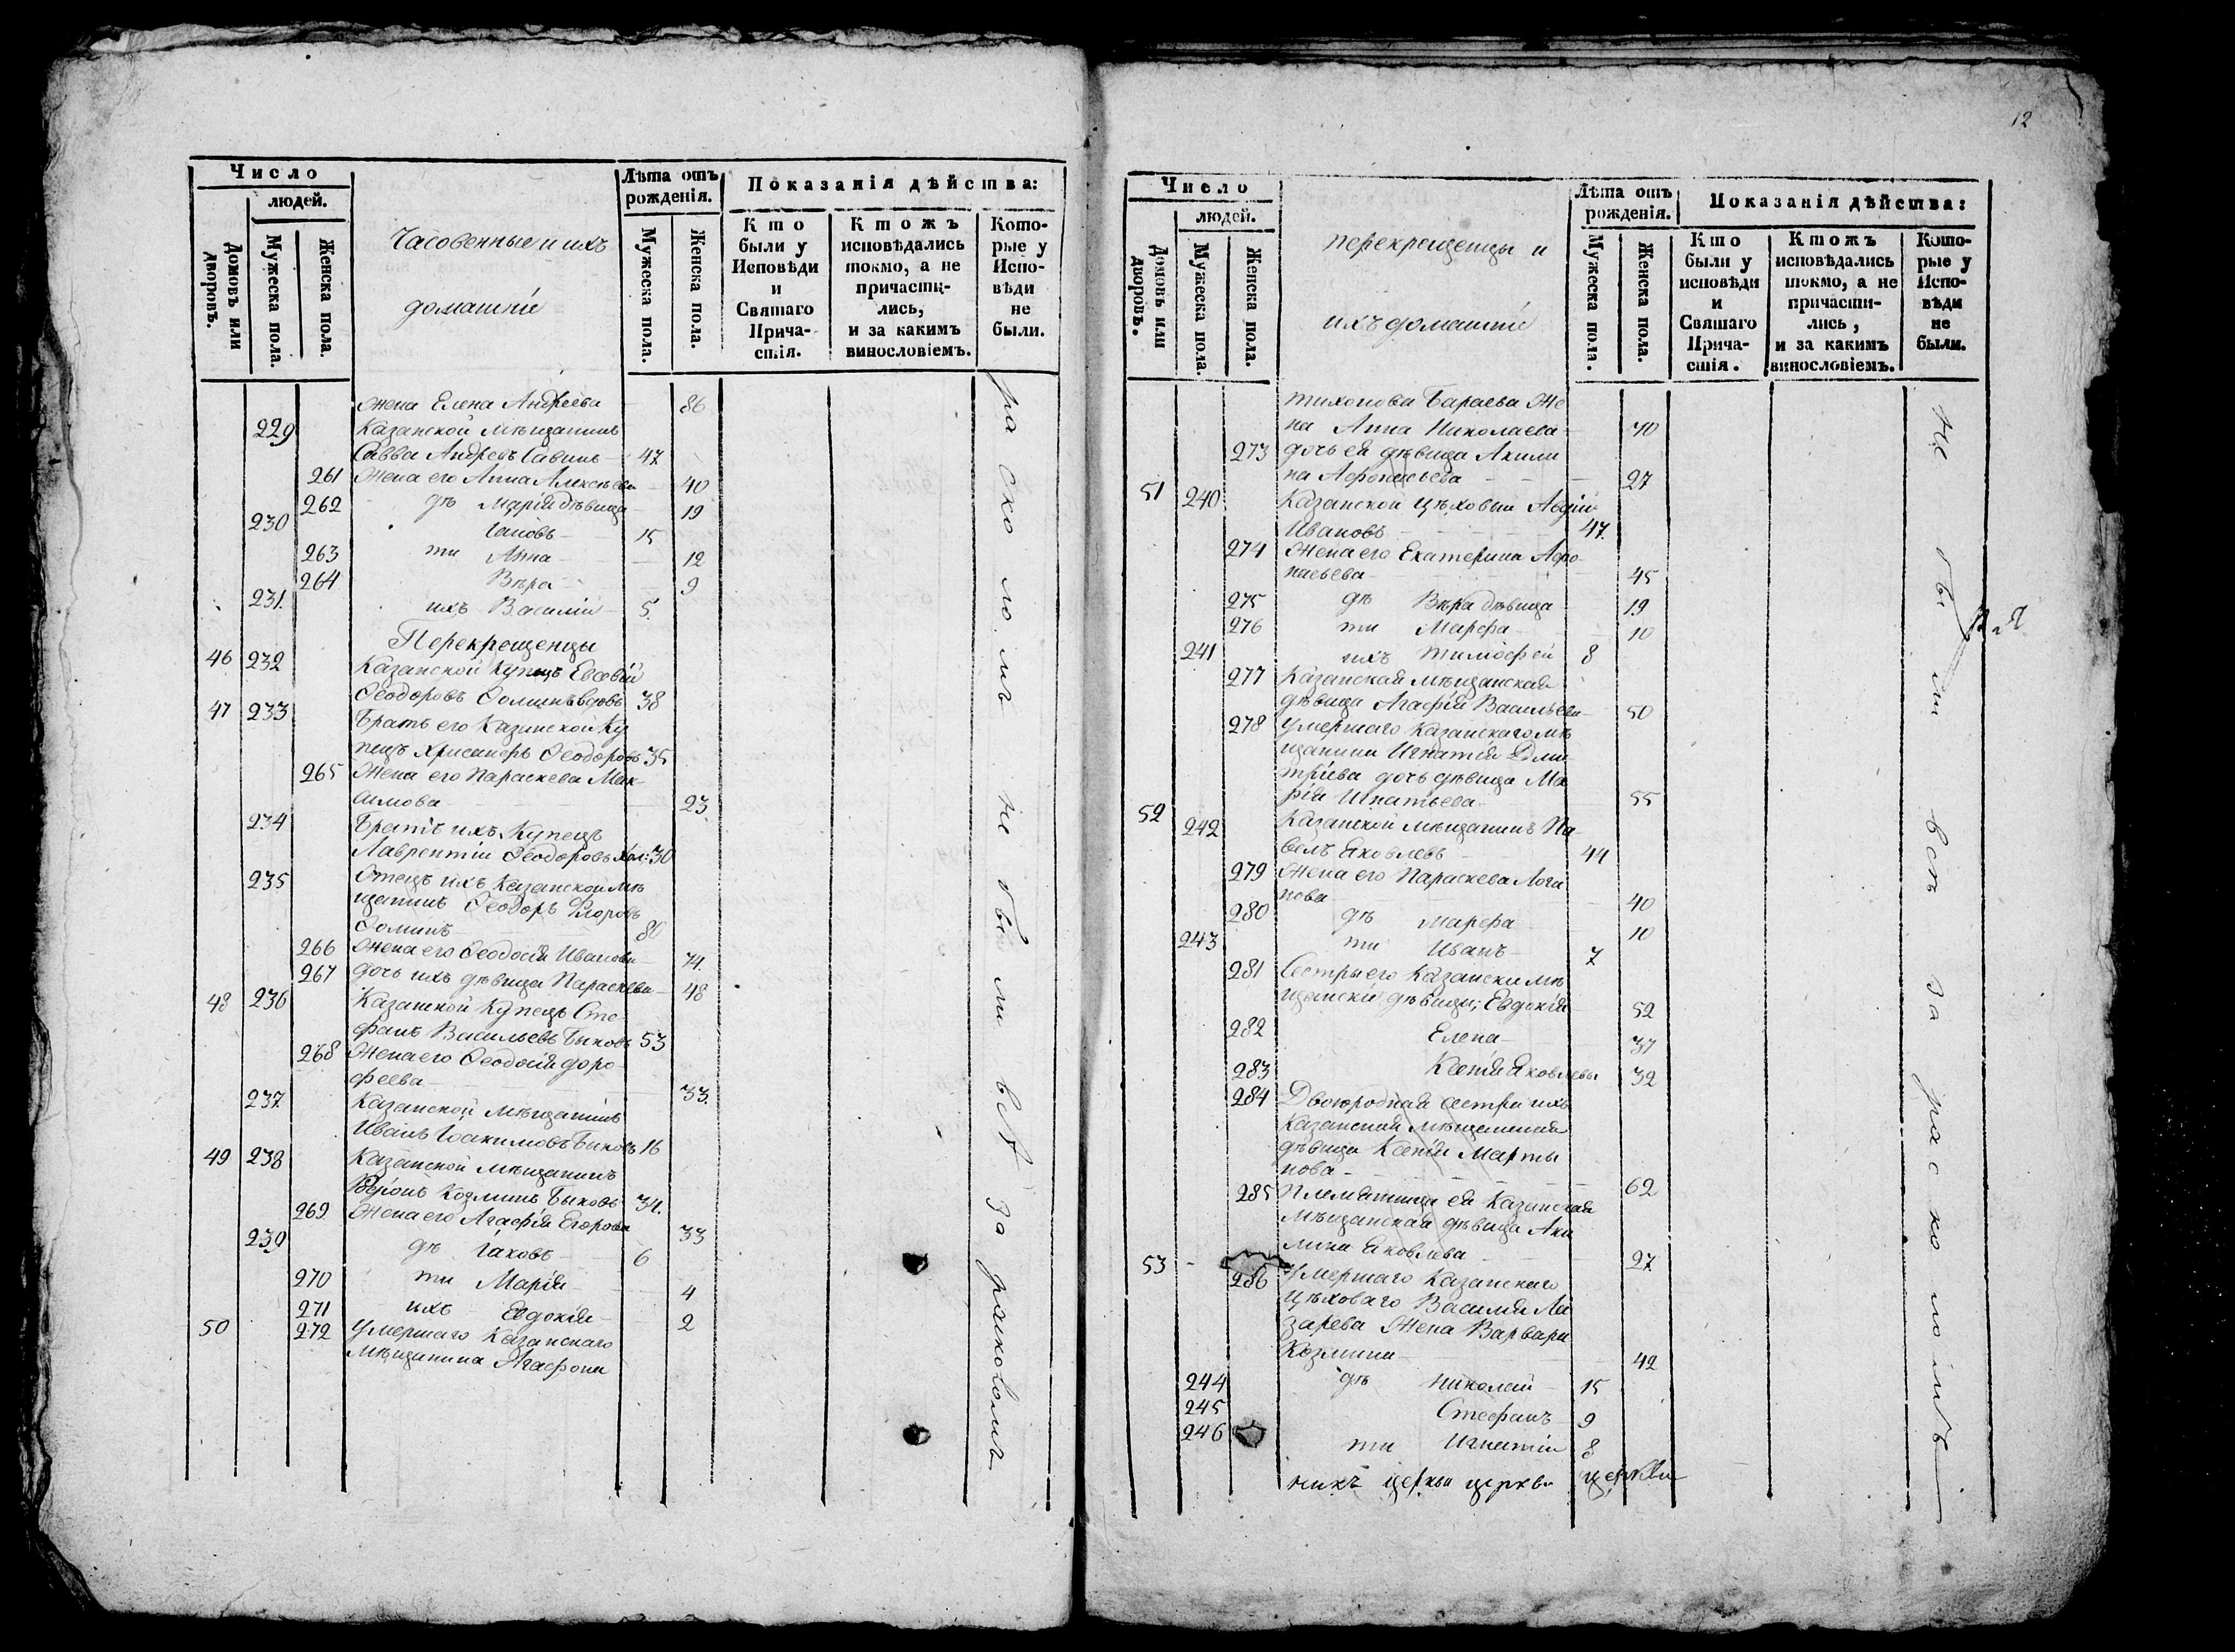 Число
людей.
Домовъ или дворовъ.
Мужеска пола.
Женска пола.
Часовенные и ихъ
домашніи
Лѣта отъ
рожденія.
Мужеска пола.
Женска пола.
Показанія дѣйства:
Кто
были у
Исповѣди
и
Святаго
Прича-
стія.
Ктожъ
исповѣдались
токмо, а не
причасти-
лись,
и за какимъ
винословіемъ.
Кото-
рые у
Испо-
вѣди
не
были.
жена Елена Андреева 86
229 Казанской Мѣщанинъ
Савва Андреевъ Савинъ 47
261 Жена его Анна Алексѣева 40
262 дѣ Марія дѣвица 19
230 Іаковъ 15
263 ти Анна 12
264 Вѣра 9
231. ихъ Василій 5.
Перекрещенцы
46 232 Казанской Купецъ Евсевій
Ѳеодоровъ Ѳоминъ вдовъ 38
47 233 Братъ его Казанской Ку
пецъ Хрисанфъ Ѳеодоровъ 35
265 Жена его Параскева Мак-
симова 23.
234 Братъ ихъ Купецъ
Лаврентіи Ѳеодоровъ хол: 30
235 Отецъ ихъ Казанской мѣ
щанинъ Ѳеодоръ Егоровъ
Ѳоминъ 80
266 Жена его Ѳеодосія Иванова 74.
267 дочь ихъ дѣвица Параскева 48
48 236 Казанской Купецъ Сте
фанъ Васильевъ Быковъ 53
268 Жена его Ѳеодосія Доро
феева 33.
237 Казанской Мѣщанинъ
Иванъ Іоакимовъ Быковъ 16
49 238 Казанской Мѣщанинъ
Козминъ Быковъ 34.
269. Жена его Агафія Егорова 33
239 дѣ Іаковъ 6
270 ти Марія 4
271 ихъ Евдокія 2
50 272 Умершаго Казанскаго
Мѣщанина Агафона
расколомъ не были всѣ за расколомъ
12
Число
людей.
Домовъ или дворовъ.
Мужеска пола.
Женска пола.
перекрещенцы и
ихъ домашніи
Лѣта отъ
рожденія.
Мужеска пола.
Женска пола.
Показанія дѣйства:
Кто
были у
исповѣди
и
Святаго
Прича-
стія.
Ктожъ
исповѣдались
токмо, а не
причасти-
лись,
и за какимъ
винословіемъ.
Кото-
рые у
Испо-
вѣди
не
были.
тихонова Бараева Же
на Анна Николаева 70
273 дочь ея дѣвица Акили
на Афонасьева 27
51 240 Казанской Цѣховый Авдій
Ивановъ 47.
274 Жена его Екатерина Афо-
насьева 45
275 дѣ Вѣра дѣвица 19
276 ти Марфа 10
241 ихъ Тимофей 8
277 Казанская мѣщанская
дѣвица Агафія Васильева 50
278 Умершаго Казанскаго мѣ
щанина Игнатія Дми
тріева дочь дѣвица Ма
рія Игнатьева 55
52 242 Казанской мѣщанинъ Па
велъ Яковлевъ 44
279 Жена его Параскева Логи
нова 40
280 дѣ Марфа 10
243 ти Иванъ 7
281 Сестры его Казански мѣ
щански дѣвицы; Евдокія 52
282 Елена 37
283 Ксенія Яковлевы 32
284 Двоюродная сестра ихъ
Казанская Мѣщанская
дѣвица Ксенія Марты
нова 62
285 Племянница ея Казанская
Мѣщанская дѣвица Аки
лина Яковлева 27
53 286 Умершаго Казанскаго
Цѣховаго Василія Ла
зарева Жена Варвара
Козмина 42
244 дѣ Николай 15
245 Стефанъ 9
246 ти Игнатіи 8
нихъ церкви церкви церкви
не были всѣ за расколомъ